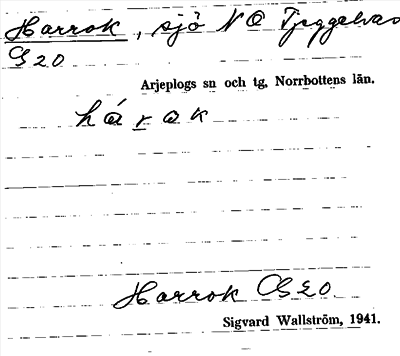 Harrok, sjö N O Tjeggelvas
G 20
Arjeplogs sn och tg, Norrbottens län.
hárak
Harrok G20
Sigvard Wallström, 1941.